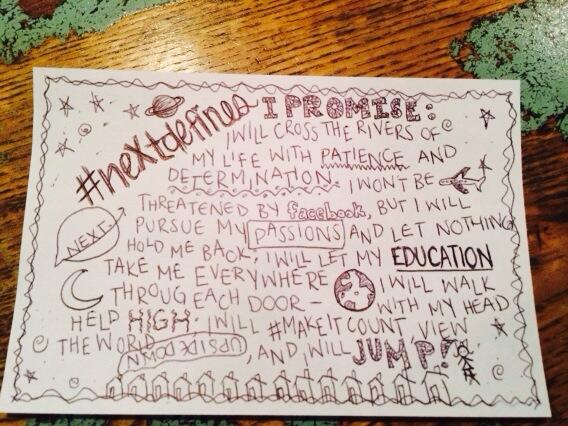 #nextdefines I PROMISE:
I WILL CROSS THE RIVERS OF
MY LIFE WITH PATIENCE AND
DETERMINATION. I WON'T BE
THREATENED BY facebook, BUT I WILL
NEXT
PURSUE MY PASSIONS AND LET NOTHING
HOLD ME BACK; I WILL LET MY EDUCATION
TAKE ME EVERYWHERE I WILL WALK
THROUG EACH DOOR - WITH MY HEAD
HELD HIGH. I WILL #MAKEITCOUNT VIEW
THE WORLD UPSIDE DOWN, AND I WILL JUMP!